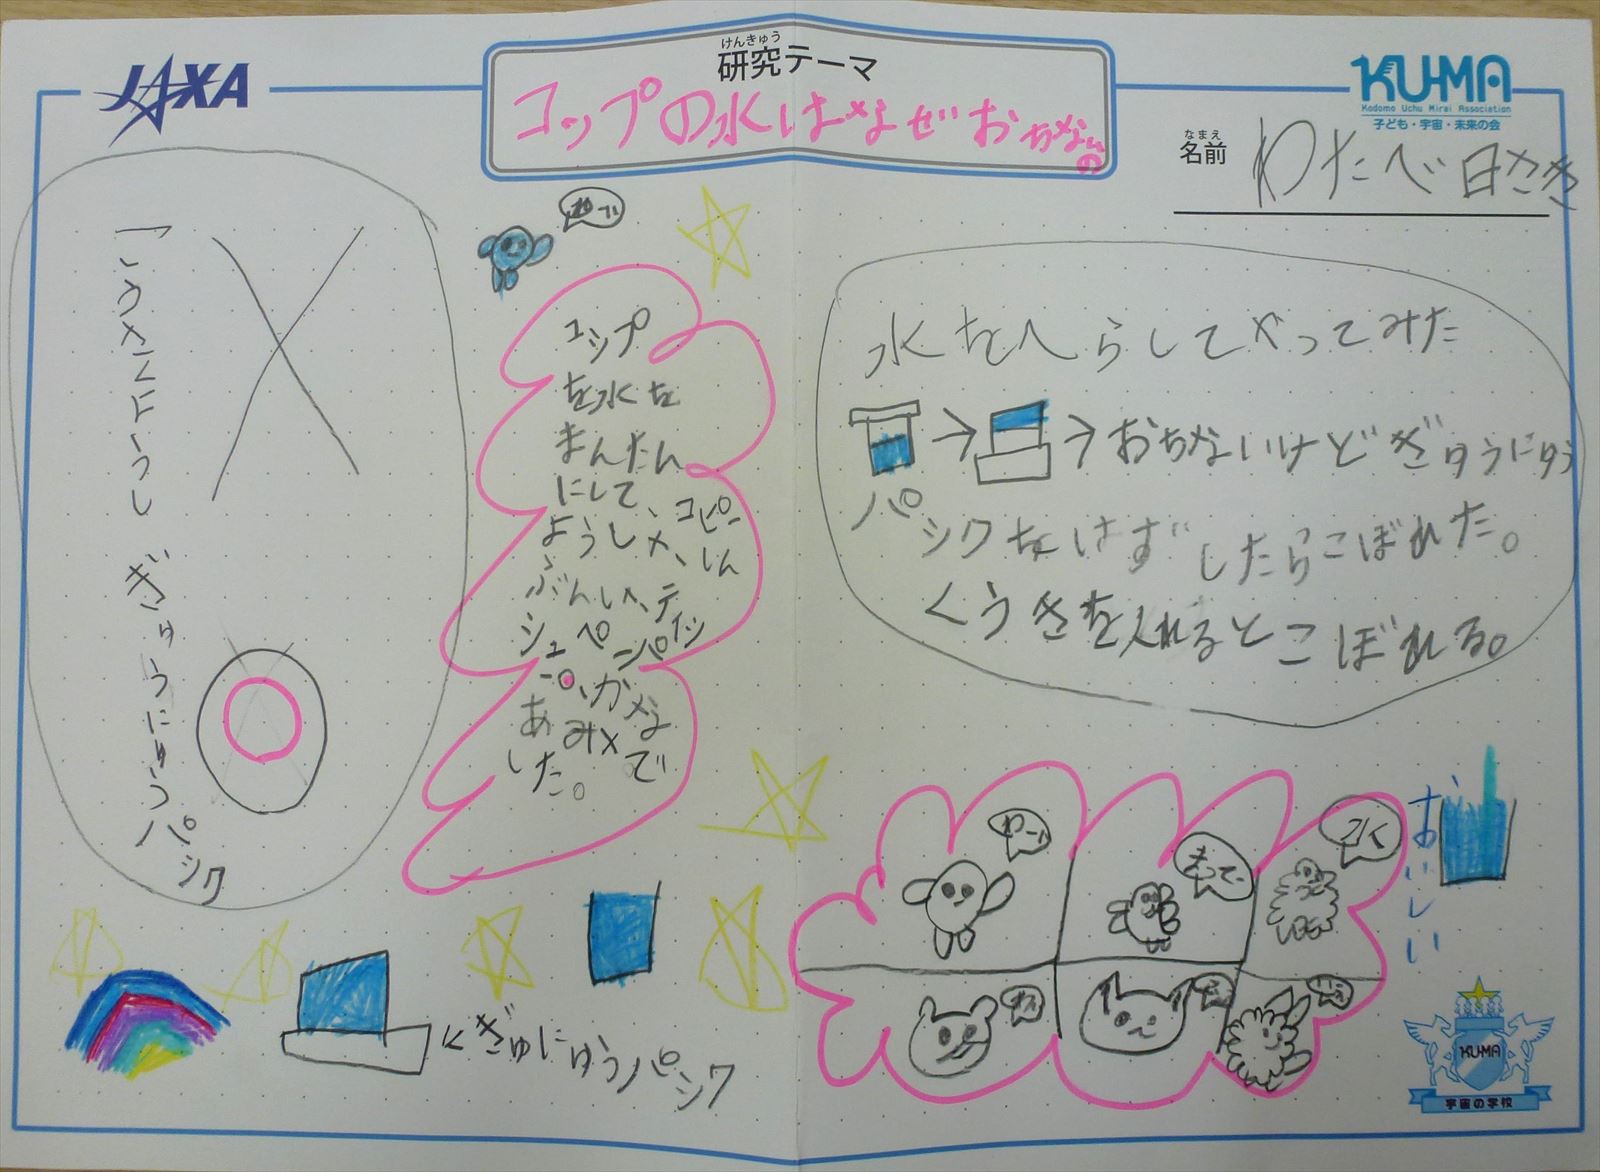 JAXA
けんきゅう
研究テーマ
コップの水はなぜおちないの
KU-MA
Kodomo Uchu Mirai Association
子ども・宇宙・未来の会
なまえ
名前
わたべ日さき
ぎゅうにゅうパック
コップ
を水を
まんたん
にして、コピー
ようしや、しん
ぶんしや、ティッ
シュペーパ
ー、かなで
あみ
した。
水をへらしてやってみた
→ → おちないけどぎゅうにゅう
パックをはずしたらこぼれた。
くうきを入れるとこぼれる。
わー
水
おいしい
<ぎゅにゅうパック
KUMA
宇宙の学校